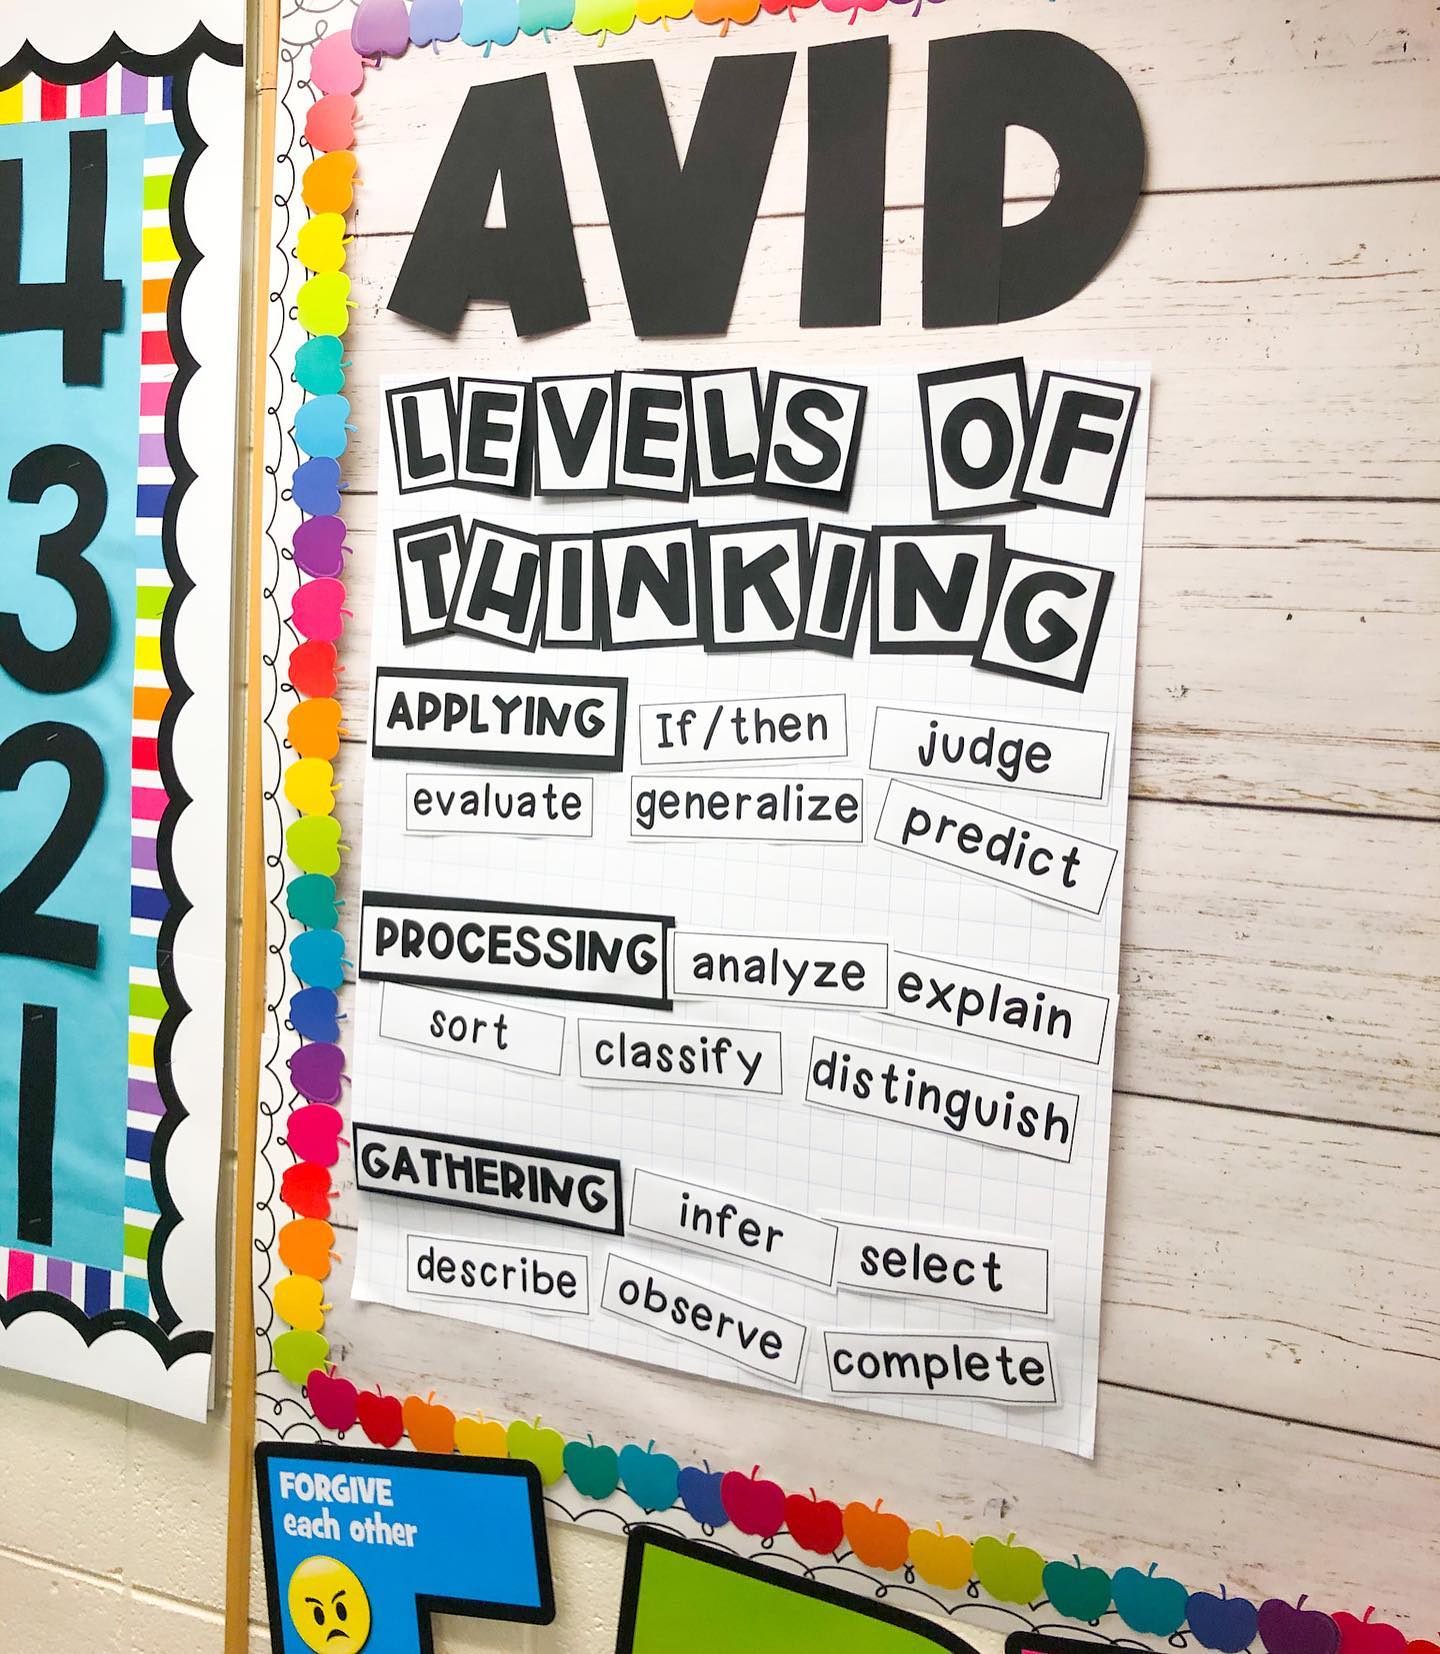 4
3
2
1
AVID
LEVELS OF
THINKING
APPLYING If/then judge
evaluate generalize predict
PROCESSING analyze explain
sort classify distinguish
GATHERING infer select
describe observe complete
FORGIVE
each other